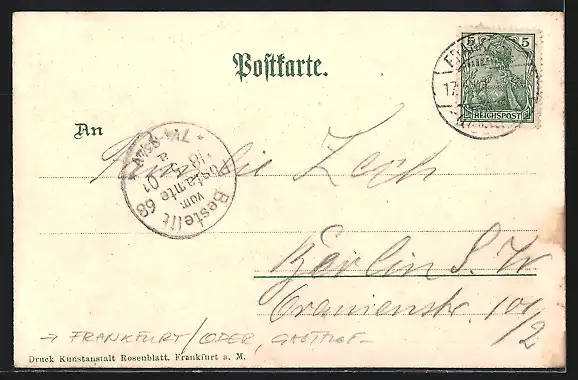 Postkarte.
5 5
REICHSPOST
17.
An
Familie Zech
Bestellt
vom
Postamte 68
18
01
Berlin S. W
Oranienstr. 101/2
→ FRANKFURT/ODER, GASTHOF –
Druck Kunstanstalt Rosenblatt, Frankfurt a. M.